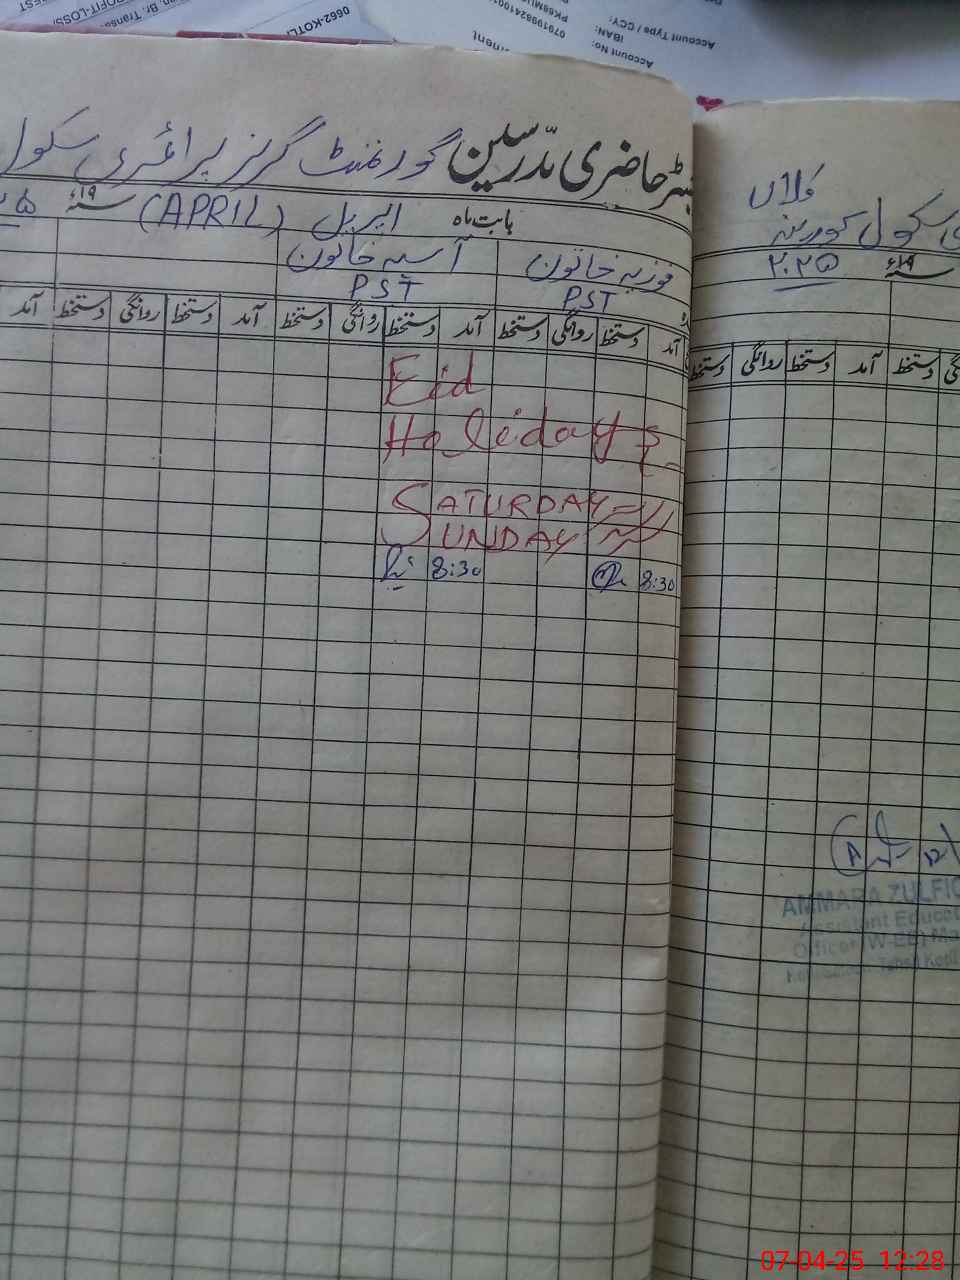 0662-KOTLI
Account Type / CCY:
IBAN:
Account No:
رجسٹر حاضری مدرسین گورنمنٹ گرلز پرائمری سکول
بابت ماہ اپریل (APRIL) سنہ ۱۹ء
فوزیہ خاتون آسیہ خاتون
PST PST
آمد دستخط روانگی دستخط آمد دستخط روانگی دستخط آمد دستخط روانگی دستخط آمد
Eid
Holidays
SATURDAY
SUNDAY
8:30 8:30
کلاں
سکول
۲۰۲۵ سنہ ۱۹ء
دستخط آمد دستخط روانگی دستخط
AMMARA ZULFIQ
Assistant Educat
Officer (W-EE) Ma
Tehsil Kotli
07-04-25 12:28